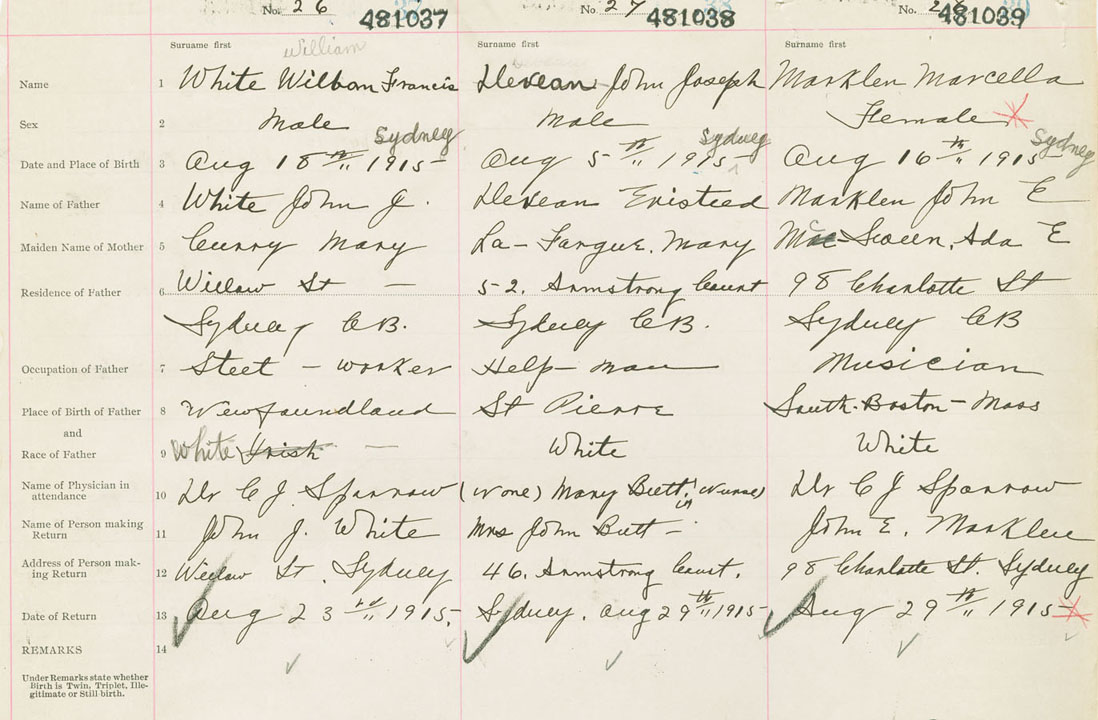 No. 26 481037 No. 27 481038 No. 28 481039
Surname first Surname first Surname first
William
Name 1 White Wilbom Francis Devean John Joseph Marklen Marcella
Sex 2 Male Male Female
Sydney Sydney Sydney
Date and Place of Birth 3 Aug 18th 1915 Aug 5th 1915 Aug 16th 1915
Name of Father 4 White John J. Devean Evisteed Marklen John E
Maiden Name of Mother 5 Curry Mary La-Fargue, Mary Mc-Sween, Ada E
Residence of Father 6 Willow St — 52. Armstrong Court 98 Charlotte St
Sydney C B. Sydney C B. Sydney C B
Occupation of Father 7 Steet - worker Help - man Musician
Place of Birth of Father 8 Newfoundland St Pierre South-Boston - Mass
and
Race of Father 9 White Irish — White White
Name of Physician in
attendance 10 Dr C J. Sparrow (None) Mary Butt, Nurse) Dr C J Sparrow
Name of Person making
Return 11 John J. White Mrs John Butt - John E. Marklen
Address of Person mak-
ing Return 12 Willow St. Sydney 46. Armstrong Court. 98 Charlotte St. Sydney
Date of Return 13 Aug 23rd 1915. Sydney. Aug 29th 1915 Aug 29th 1915
REMARKS 14
Under Remarks state whether
Birth is Twin, Triplet, Ille-
gitimate or Still birth.